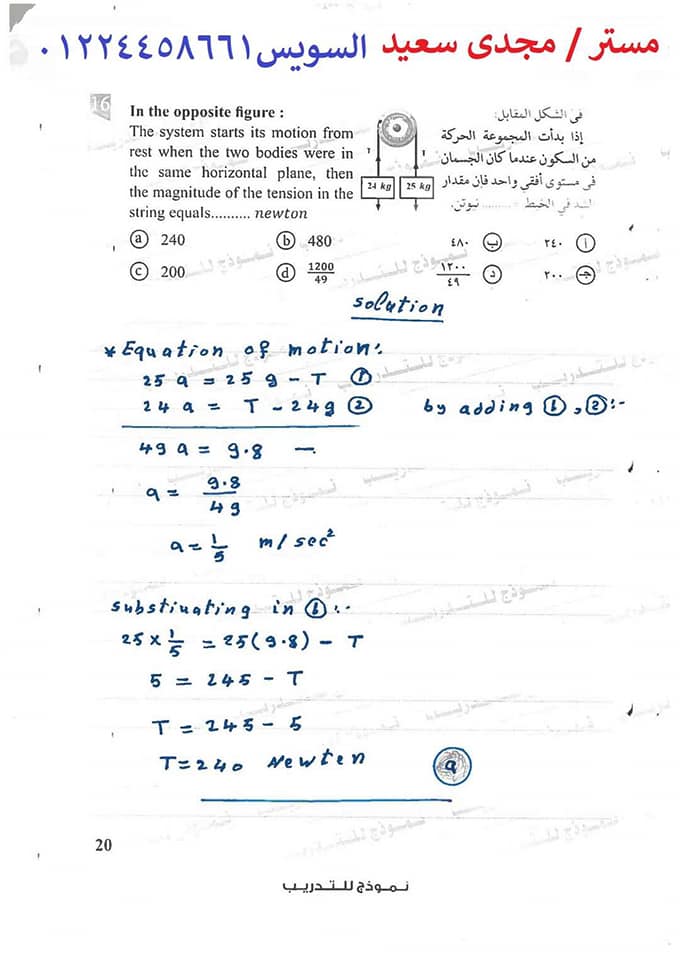 مستر / مجدى سعيد السويس ٠١٢٢٤٤٥٨٦٦١
16 In the opposite figure :
The system starts its motion from
rest when the two bodies were in
the same horizontal plane, then
the magnitude of the tension in the
string equals.......... newton
T T
24 kg 25 kg
فى الشكل المقابل:
إذا بدأت المجموعة الحركة
من السكون عندما كان الجسمان
فى مستوى أفقى واحد فإن مقدار
الشد فى الخيط = ......... نيوتن.
a 240 b 480
c 200 d 1200/49
أ ٢٤٠ ب ٤٨٠
ج ٢٠٠ د ١٢٠٠/٤٩
solution
* Equation of motion:-
25 a = 25 g - T ①
24 a = T - 24g ② by adding ①,②:-
49 a = 9.8 —
a = 9.8/49
a = 1/5 m/sec²
substiuating in ①:-
25 × 1/5 = 25(9.8) - T
5 = 245 - T
T = 245 - 5
T = 240 Newten a
20
نموذج للتدريب